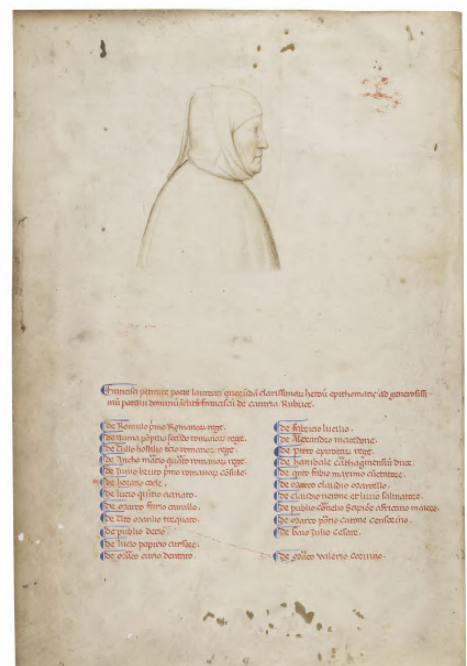 Francisci petrarce poete laureati quorūdā clarissimorū heroū epithomatis ad generosissi
mū patavi dominū franciscū de carraria. Rubrice.
de Romulo pmo Romanorū rege.
de numa pōpilio secūdo romanorū rege.
de tullo hostilio tcio romanorū rege.
de Ancho marcio quarto romanorū rege.
de Junio bruto pmo romanorū cōsule.
de horatio cocle.
de lucio quītio cīcinato.
de marco furio camillo.
de tito manlio torquato.
de publio decio.
de lucio papirio cursore.
de marco curio dentato.
de fabricio lucinio.
de Alexandro macedone.
de pirro epirotarū rege.
de hanibale cathaginensiū duce.
de quīto fabio maximo cūctatore.
de marco claudio marcello.
de claudio nerone et livio salinatore.
de publio cornelio scipiōe africano maiore.
de marco portio catone censorino.
de Julio cesare.
de marco valerio corvino.